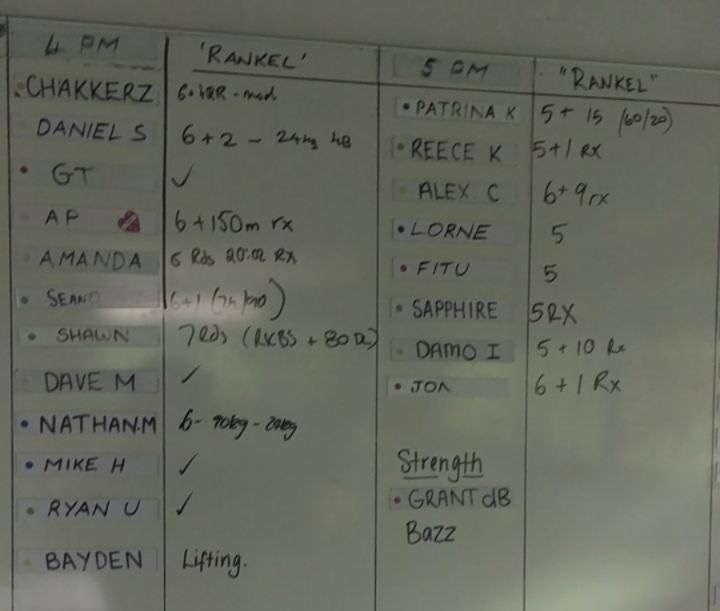 4 PM 'RANKEL'
CHAKKERZ
DANIEL S 6+2 - 24kg KB
GT ✓
AP 6+150m rx
AMANDA 6 Rds 20:02 RX
SEAN 6+1
SHAWN 7 Rds (RKBS + 80
DAVE M ✓
NATHAN.M 6- 90kg - 24kg
MIKE H ✓
RYAN U ✓
BAYDEN Lifting.
5 PM "RANKEL"
PATRINA K 5+ 15 (60/20)
REECE K 5+1 RX
ALEX C 6+9rx
LORNE 5
FITU 5
SAPPHIRE 5RX
DAMO I 5+10 Rx
JON 6+1 Rx
Strength
GRANT dB
Bazz